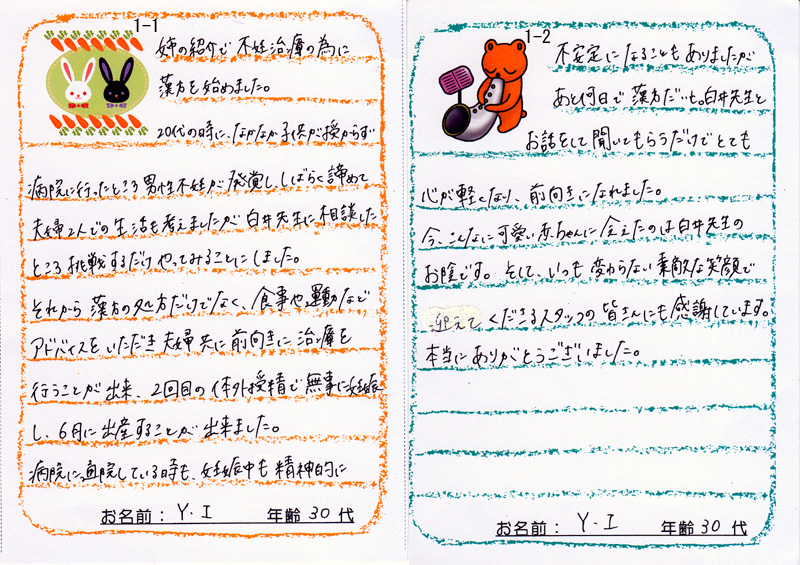 1-1
姉の紹介で不妊治療の為に
漢方を始めました。
20代の時に、なかなか子供が授からず
病院に行ったところ男性不妊が発覚し、しばらく諦めて
夫婦2人での生活も考えましたが臼井先生に相談した
ところ挑戦するだけやってみることにしました。
それから漢方の処方だけでなく、食事や運動など
アドバイスをいただき夫婦共に前向きに治療を
行うことが出来、2回目の体外授精で無事に妊娠
し、6月に出産することが出来ました。
病院に通院している時も、妊娠中も精神的に
お名前: Y.I 年齢 30 代
1-2
不安定になることもありましたが
あと何日で漢方だ!も。臼井先生と
お話をして聞いてもらうだけでとても
心が軽くなり、前向きになれました。
今、こんなに可愛い赤ちゃんに会えたのは臼井先生の
お陰です。そして、いつも変わらない素敵な笑顔で
迎えてくださるスタッフの皆さんにも感謝しています。
本当にありがとうございました。
お名前: Y.I 年齢 30 代